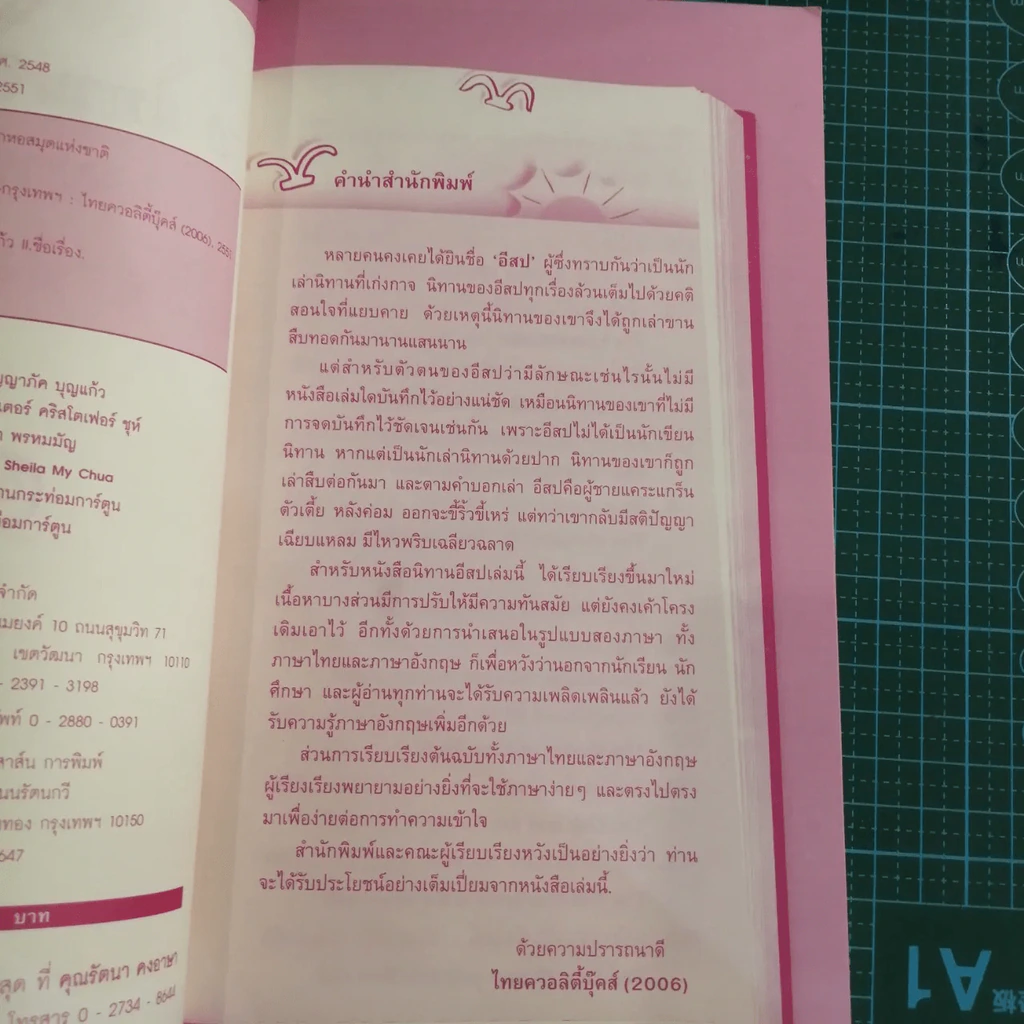 ศ. 2548
2551
หอสมุดแห่งชาติ
กรุงเทพฯ : ไทยควอลิตี้บุ๊คส์ (2006), 2551
II.ชื่อเรื่อง.
บุญแก้ว
คริสโตเฟอร์ ซุห์
พรหมมัญ
Sheila My Chua
กระท่อมการ์ตูน
การ์ตูน
จำกัด
10 ถนนสุขุมวิท 71
เขตวัฒนา กรุงเทพฯ 10110
- 2391 - 3198
0 - 2880 - 0391
การพิมพ์
ถนนรัตนกวี
กรุงเทพฯ 10150
647
บาท
ที่ คุณรัตนา คงอาษา
โทรสาร 0 - 2734 - 8644
คำนำสำนักพิมพ์
หลายคนคงเคยได้ยินชื่อ 'อีสป' ผู้ซึ่งทราบกันว่าเป็นนัก
เล่านิทานที่เก่งกาจ นิทานของอีสปทุกเรื่องล้วนเต็มไปด้วยคติ
สอนใจที่แยบคาย ด้วยเหตุนี้นิทานของเขาจึงได้ถูกเล่าขาน
สืบทอดกันมานานแสนนาน
แต่สำหรับตัวตนของอีสปว่ามีลักษณะเช่นไรนั้นไม่มี
หนังสือเล่มใดบันทึกไว้อย่างแน่ชัด เหมือนนิทานของเขาที่ไม่มี
การจดบันทึกไว้ชัดเจนเช่นกัน เพราะอีสปไม่ได้เป็นนักเขียน
นิทาน หากแต่เป็นนักเล่านิทานด้วยปาก นิทานของเขาก็ถูก
เล่าสืบต่อกันมา และตามคำบอกเล่า อีสปคือผู้ชายแคระแกร็น
ตัวเตี้ย หลังค่อม ออกจะขี้ริ้วขี้เหร่ แต่ทว่าเขากลับมีสติปัญญา
เฉียบแหลม มีไหวพริบเฉลียวฉลาด
สำหรับหนังสือนิทานอีสปเล่มนี้ ได้เรียบเรียงขึ้นมาใหม่
เนื้อหาบางส่วนมีการปรับให้มีความทันสมัย แต่ยังคงเค้าโครง
เดิมเอาไว้ อีกทั้งด้วยการนำเสนอในรูปแบบสองภาษา ทั้ง
ภาษาไทยและภาษาอังกฤษ ก็เพื่อหวังว่านอกจากนักเรียน นัก
ศึกษา และผู้อ่านทุกท่านจะได้รับความเพลิดเพลินแล้ว ยังได้
รับความรู้ภาษาอังกฤษเพิ่มอีกด้วย
ส่วนการเรียบเรียงต้นฉบับทั้งภาษาไทยและภาษาอังกฤษ
ผู้เรียงเรียงพยายามอย่างยิ่งที่จะใช้ภาษาง่ายๆ และตรงไปตรง
มาเพื่อง่ายต่อการทำความเข้าใจ
สำนักพิมพ์และคณะผู้เรียบเรียงหวังเป็นอย่างยิ่งว่า ท่าน
จะได้รับประโยชน์อย่างเต็มเปี่ยมจากหนังสือเล่มนี้.
ด้วยความปรารถนาดี
ไทยควอลิตี้บุ๊คส์ (2006)
A1